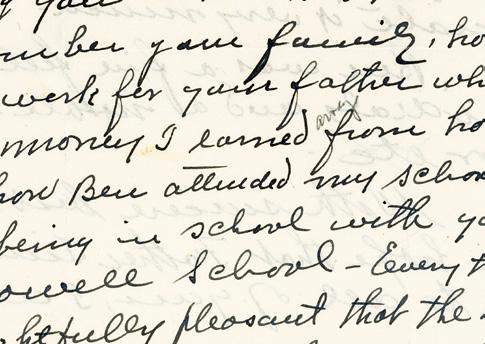 you
mber your family, ho
work for your father wh
money I earned away from ho
how Ben attended my schoo
being in school with yo
owell School – Every t
htfully pleasant that the